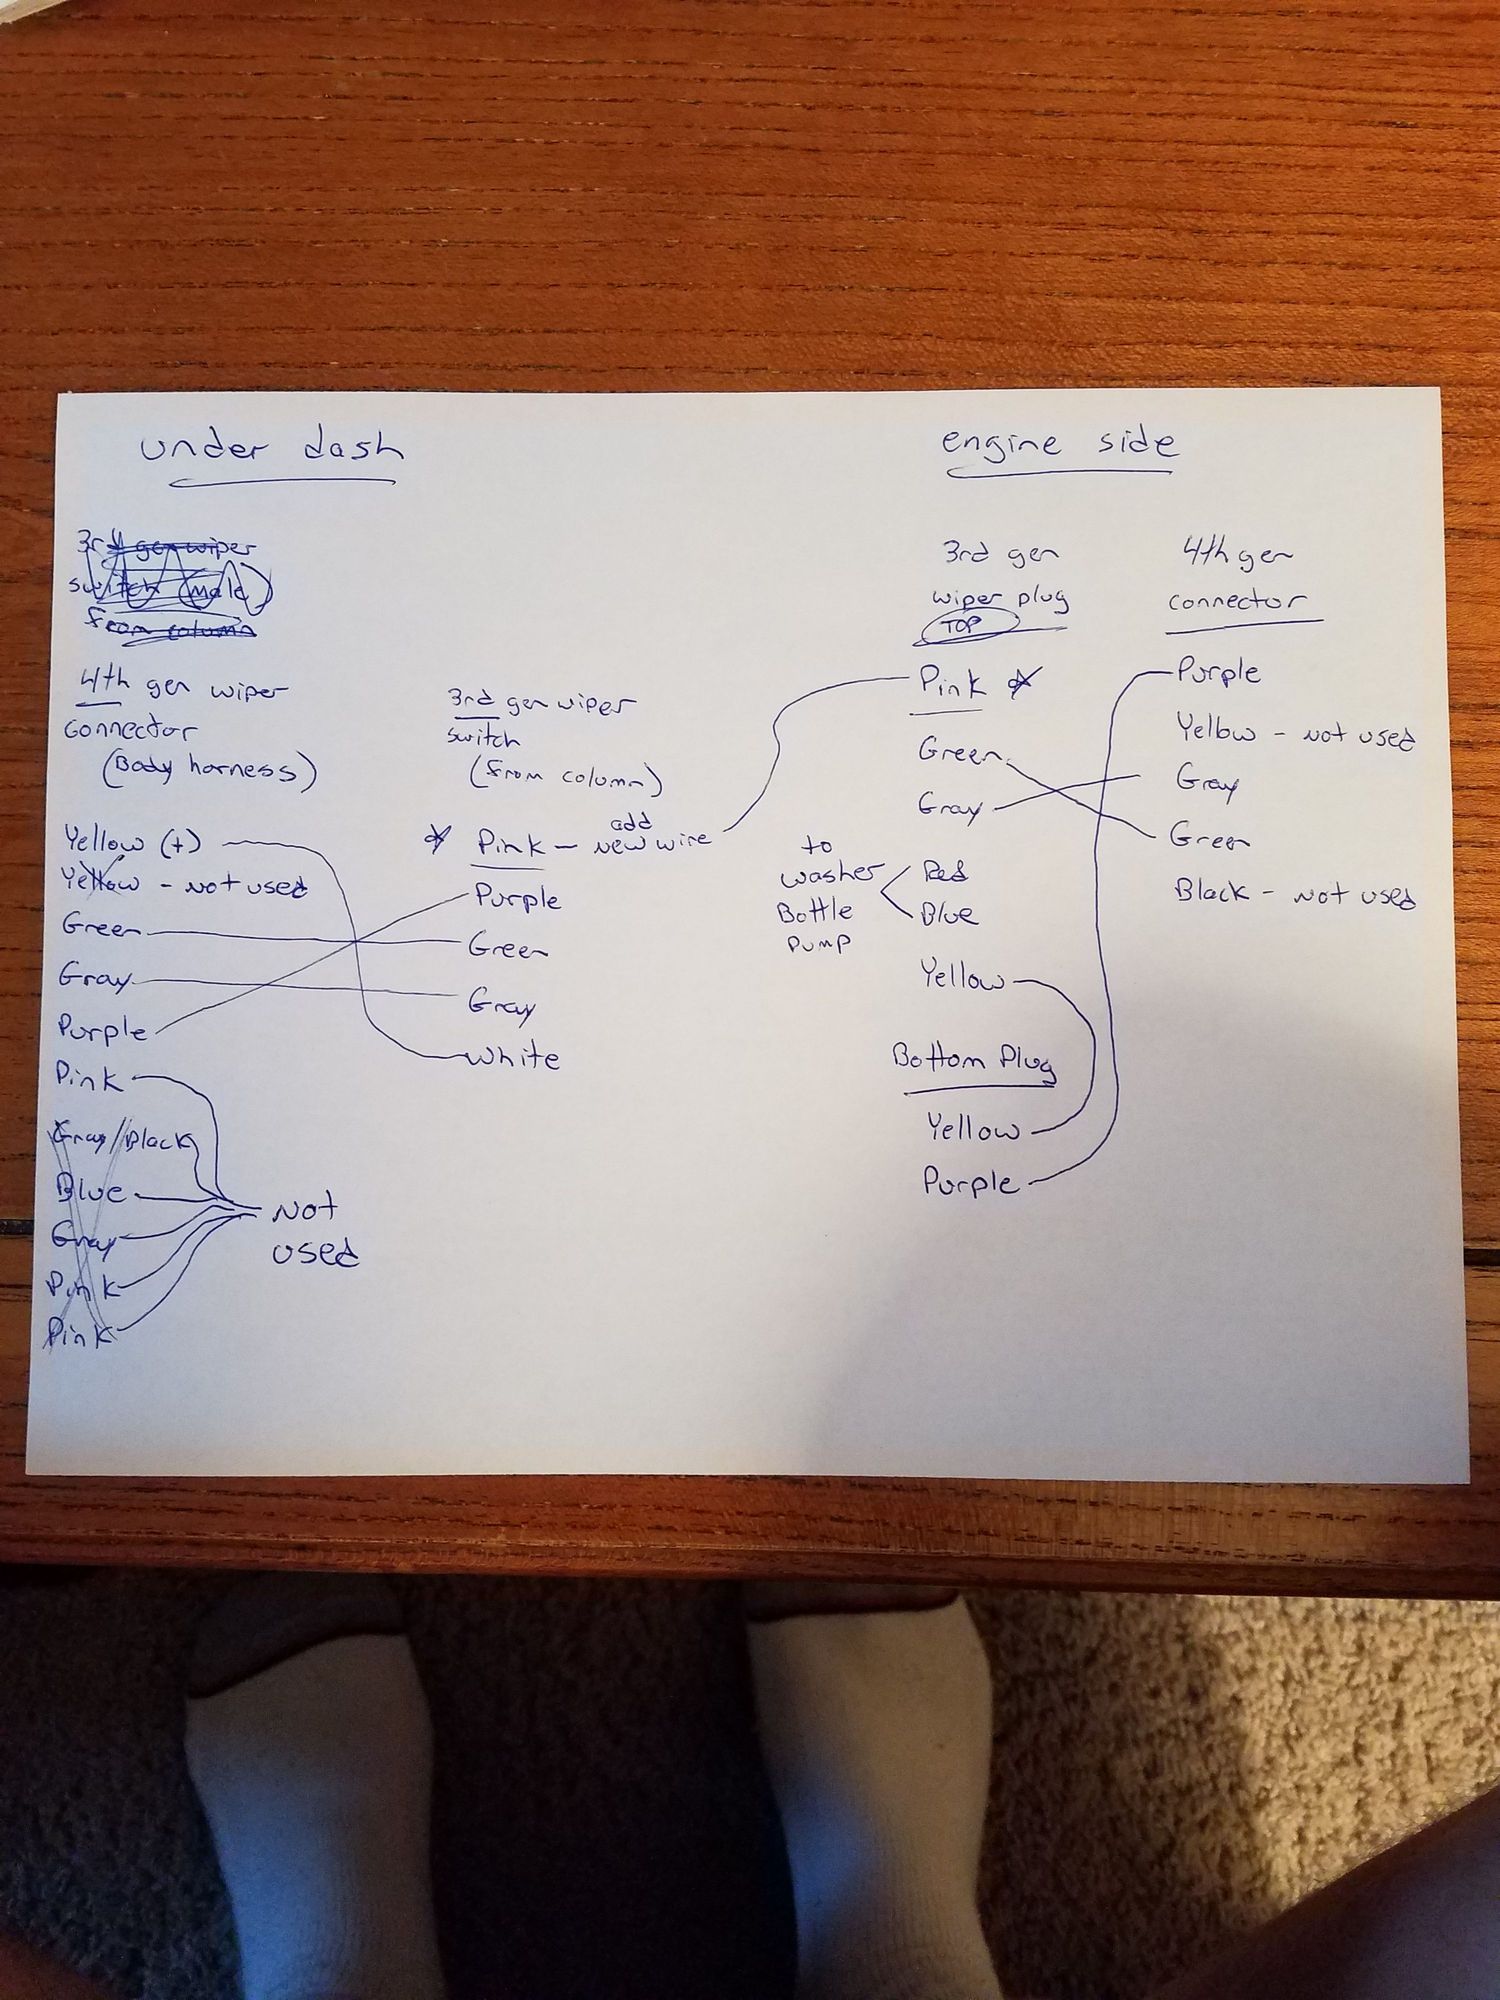 under dash
3rd gen wiper
switch (male)
from column
4th gen wiper
connector
(Body harness)
Yellow (+)
Yellow - not used
Green
Gray
Purple
Pink
Gray/Black
Blue
Gray
Pink
Pink
Not
used
3rd gen wiper
switch
(from column)
add
Pink - new wire
Purple
Green
Gray
White
engine side
3rd gen
wiper plug
TOP
Pink
Green
Gray
to
washer
Bottle
pump
Red
Blue
Yellow
Bottom Plug
Yellow
Purple
4th gen
connector
Purple
Yellow - not used
Gray
Green
Black - not used